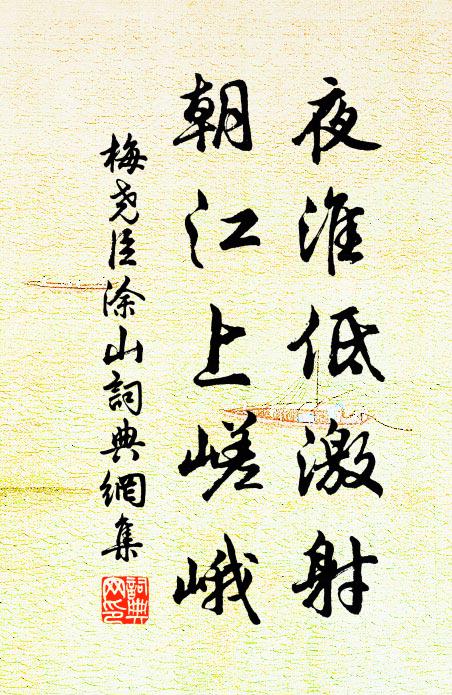 夜淮低激射
朝江上嵯峨
梅尧臣涂山詞典網集
詞典
网印